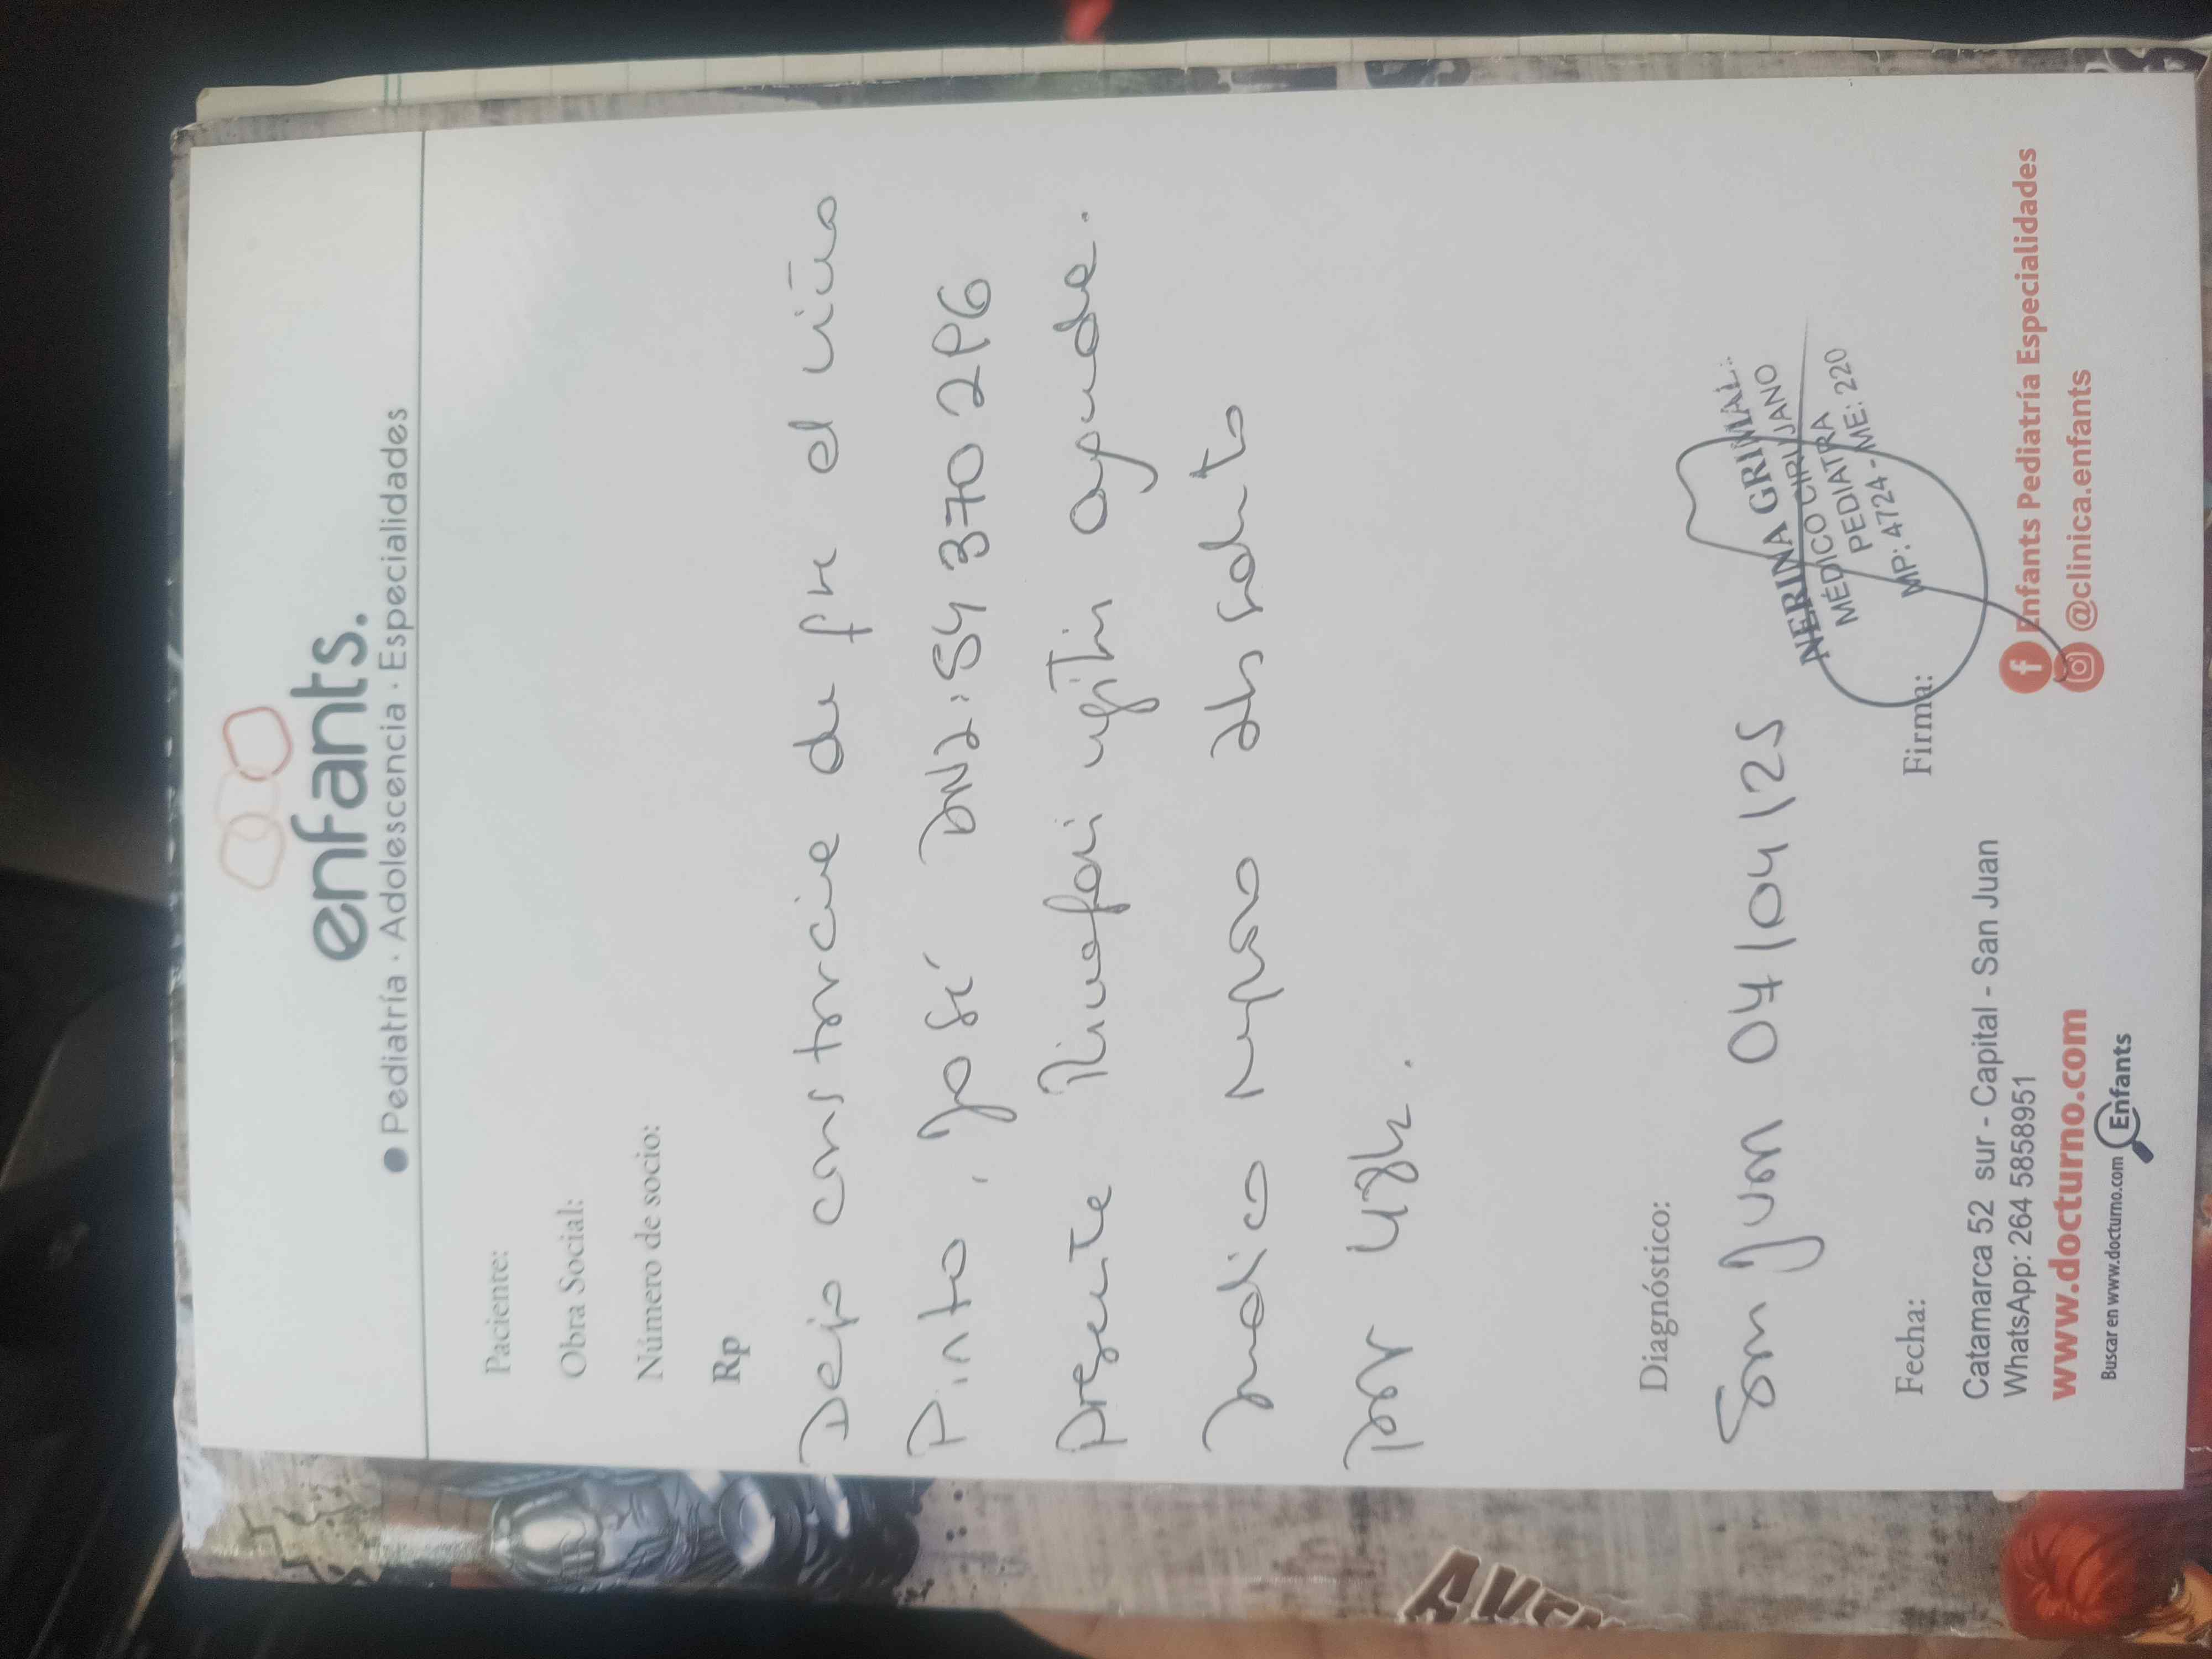 enfants.
Pediatría · Adolescencia · Especialidades
Paciente:
Obra Social:
Número de socio:
Rp
Dejo constancia de que el niño
Pinto, José DNI: 54 370 296
presente Rinofaringitis aguda.
Indico reposo absoluto
por 48h.
Diagnóstico:
San Juan 04/04/25
NERINA GRIMAL
MÉDICO CIRUJANO
PEDIATRA
MP: 4724 - ME: 220
Fecha:
Firma:
Catamarca 52 sur - Capital - San Juan
WhatsApp: 264 5858951
www.docturno.com
Buscar en www.docturno.com Enfants
Enfants Pediatría Especialidades
@clinica.enfants